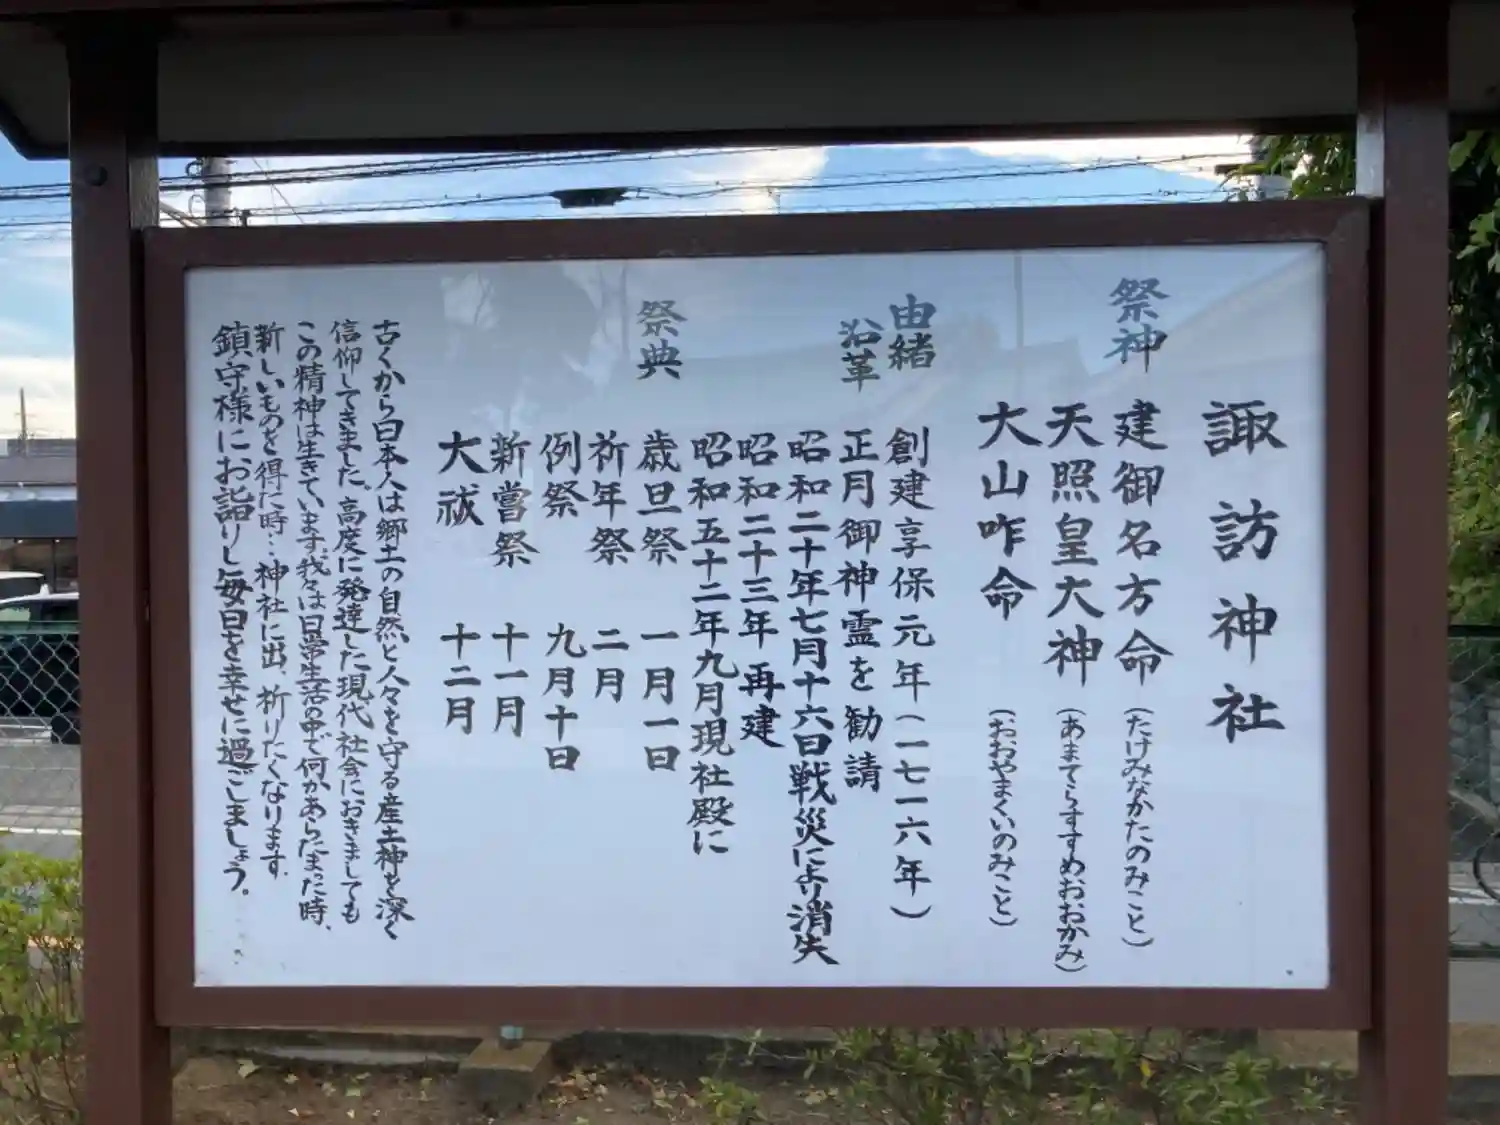 諏訪神社
祭神 建御名方命(たけみなかたのみこと)
天照皇大神(あまてらすすめおおかみ)
大山咋命(おおやまくいのみこと)
由緒 創建享保元年(一七一六年)
沿革 正月御神霊を勧請
昭和二十年七月十六日戦災により消失
昭和二十三年再建
昭和五十二年九月現社殿に
祭典 歳旦祭 一月一日
祈年祭 二月
例祭 九月十日
新嘗祭 十一月
大祓 十二月
古くから日本人は郷土の自然と人々を守る産土神を深く
信仰してきました。高度に発達した現代社会におきましても
この精神は生きています。我々は日常生活の中で何かあらたまった時、
新しいものを得た時…神社に出、祈りたくなります。
鎮守様にお詣りし毎日を幸せに過ごしましょう。